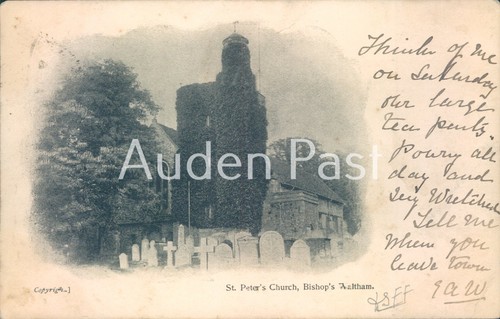 Think of me
on Saturday
our large
tea party
Poury all
day and
very Wretched
Tell me
when you
leave town
EAW
Auden Past
St. Peter's Church, Bishop's Waltham.
Copyright.]